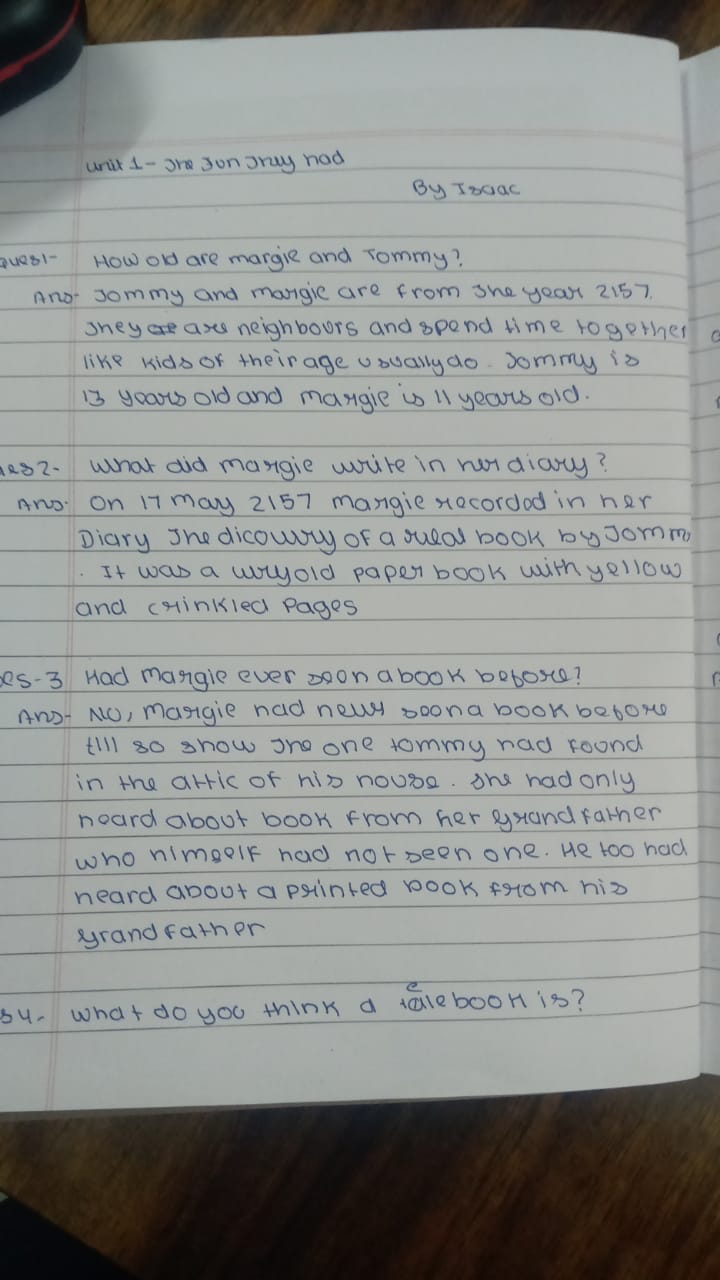 unit 1- The Fun They had
By Isaac
Ques1- How old are margie and Tommy?
Ans- Tommy and margie are from The year 2157.
They are neighbours and spend time together
like kids of their age usually do. Tommy is
13 years old and margie is 11 years old.
ues2- What did margie write in her diary?
Ans- On 17 may 2157 margie recorded in her
Diary The dicovery of a real book by Tomm
. It was a very old paper book with yellow
and crinkled Pages
es-3 Had margie ever seen a book before?
Ans- No, margie had never seen a book before
till so show The one tommy had found
in the attic of his house. She had only
heard about book from her grandfather
who himself had not seen one. He too had
heard about a printed book from his
grandfather
s4- what do you think a telebook is?